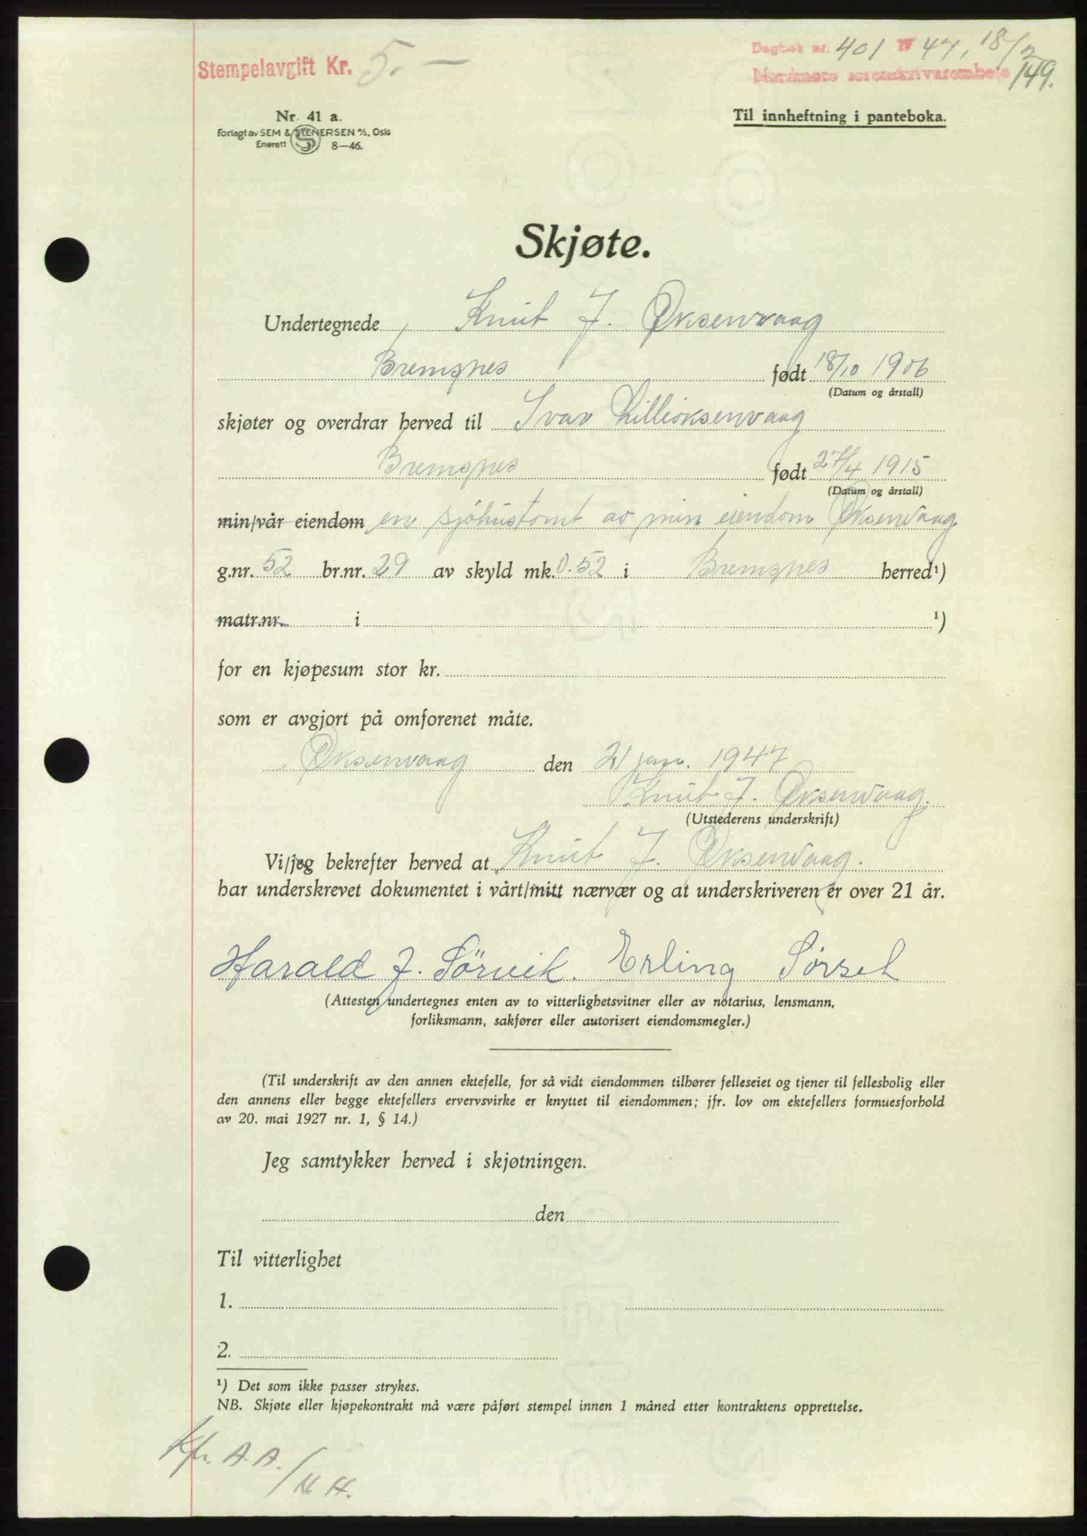 Stempelavgift Kr. 5.—
Dagbok nr. 401 19 47, 18/2
Nordmøre sorenskrivarembete 149.
Nr. 41 a.
Forlagt av SEM & STENERSEN A/S, Oslo
Enerett 8—46.
Til innheftning i panteboka.
Skjøte.
Undertegnede Knut J. Øksenvaag
Bremsnes født 18/10 1906
(Datum og årstall)
skjøter og overdrar herved til Ivar Lilleøksenvaag
Bremsnes født 27/4 1915
(Datum og årstall)
min/vår eiendom en sjøhustomt av min eiendom Øksenvaag
g.nr. 52 br.nr. 29 av skyld mk. 0.52 i Bremsnes herred¹)
matr.nr. i ¹)
for en kjøpesum stor kr.
som er avgjort på omforenet måte.
Øksenvaag den 21 jan. 1947
Knut J. Øksenvaag.
(Utstederens underskrift)
Vi/jeg bekrefter herved at Knut J. Øksenvaag.
har underskrevet dokumentet i vårt/mitt nærvær og at underskriveren er over 21 år.
Harald J. Sörvik. Erling Sörset
(Attesten undertegnes enten av to vitterlighetsvitner eller av notarius, lensmann,
forliksmann, sakfører eller autorisert eiendomsmegler.)
(Til underskrift av den annen ektefelle, for så vidt eiendommen tilhører felleseiet og tjener til fellesbolig eller
den annens eller begge ektefellers ervervsvirke er knyttet til eiendommen; jfr. lov om ektefellers formuesforhold
av 20. mai 1927 nr. 1, § 14.)
Jeg samtykker herved i skjøtningen.
den
Til vitterlighet
1.
2.
¹) Det som ikke passer strykes.
NB. Skjøte eller kjøpekontrakt må være påført stempel innen 1 måned etter kontraktens opprettelse.
Kfr. A.A./N.H.